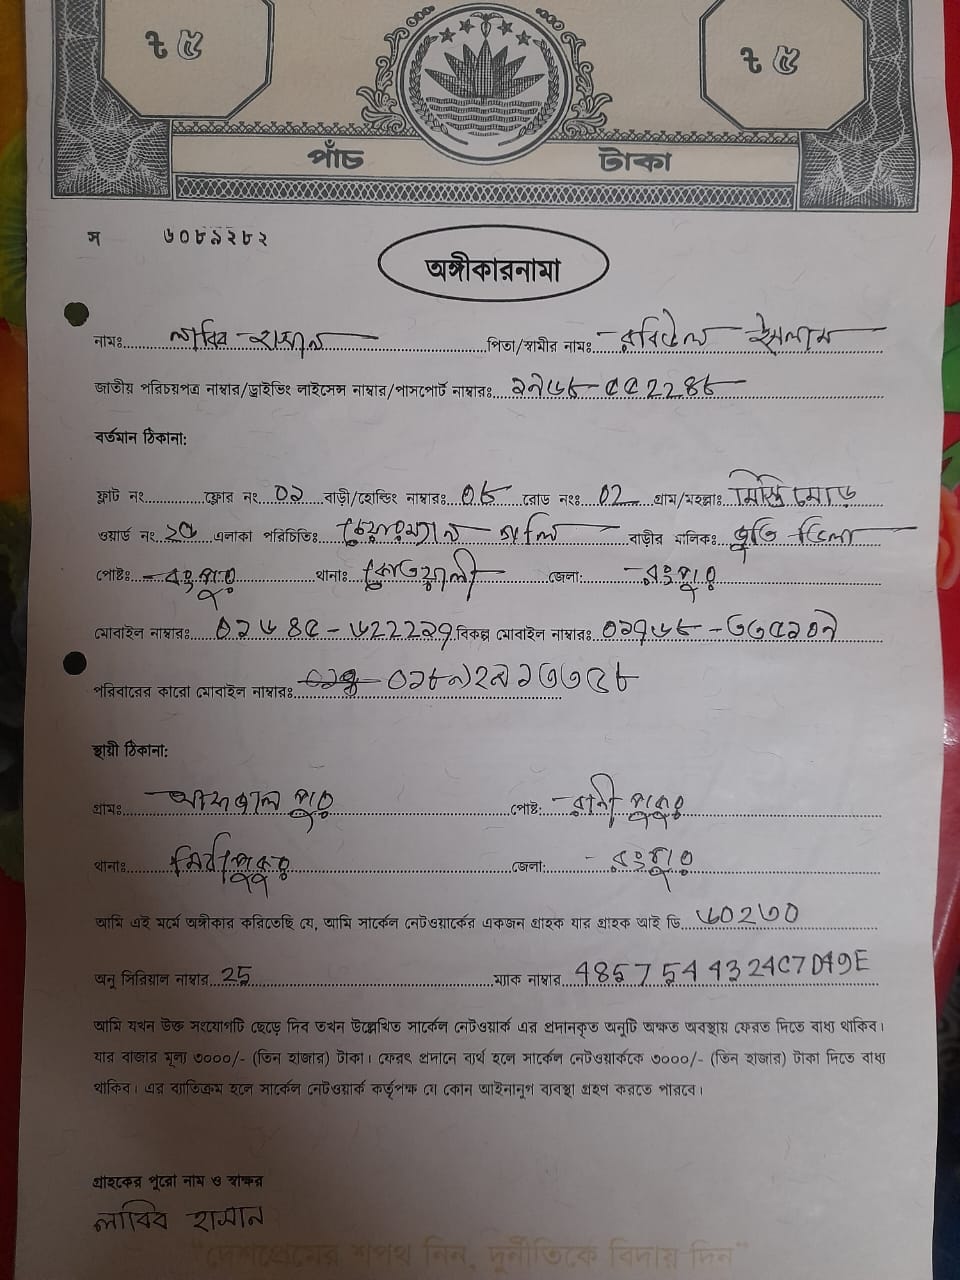 ৳ ৫ ৳ ৫
পাঁচ টাকা
স ৬০৮৯২৮২
অঙ্গীকারনামা
নামঃ লাবিব হাসান পিতা/স্বামীর নামঃ রবিউল ইসলাম
জাতীয় পরিচয়পত্র নাম্বার/ড্রাইভিং লাইসেন্স নাম্বার/পাসপোর্ট নাম্বারঃ
বর্তমান ঠিকানা:
ফ্লাট নং ফ্লোর নং ০১ বাড়ী/হোল্ডিং নাম্বারঃ ০৮ রোড নংঃ ০২ গ্রাম/মহল্লাঃ মিস্ত্রি মোড়
ওয়ার্ড নং ২৫ এলাকা পরিচিতিঃ চেয়ারম্যান গলি বাড়ীর মালিকঃ ভিলা
পোষ্টঃ রংপুর থানাঃ কোতয়ালী জেলাঃ রংপুর
মোবাইল নাম্বারঃ বিকল্প মোবাইল নাম্বারঃ
পরিবারের কারো মোবাইল নাম্বারঃ
স্থায়ী ঠিকানা:
গ্রামঃ পোষ্ট: রানী পুকুর
থানাঃ মির্যাপুকুর জেলা: রংপুর
আমি এই মর্মে অঙ্গীকার করিতেছি যে, আমি সার্কেল নেটওয়ার্কের একজন গ্রাহক যার গ্রাহক আই ডি ৬০২৩০
অনু সিরিয়াল নাম্বার 25 ম্যাক নাম্বার
আমি যখন উক্ত সংযোগটি ছেড়ে দিব তখন উল্লেখিত সার্কেল নেটওয়ার্ক এর প্রদানকৃত অনুটি অক্ষত অবস্থায় ফেরত দিতে বাধ্য থাকিব।
যার বাজার মূল্য ৩০০০/- (তিন হাজার) টাকা। ফেরৎ প্রদানে ব্যর্থ হলে সার্কেল নেটওয়ার্ককে ৩০০০/- (তিন হাজার) টাকা দিতে বাধ্য
থাকিব। এর ব্যাতিক্রম হলে সার্কেল নেটওয়ার্ক কর্তৃপক্ষ যে কোন আইনানুগ ব্যবস্থা গ্রহণ করতে পারবে।
গ্রাহকের পুরো নাম ও স্বাক্ষর
লাবিব হাসান
"দেশপ্রেমের শপথ নিন, দুর্নীতিকে বিদায় দিন"